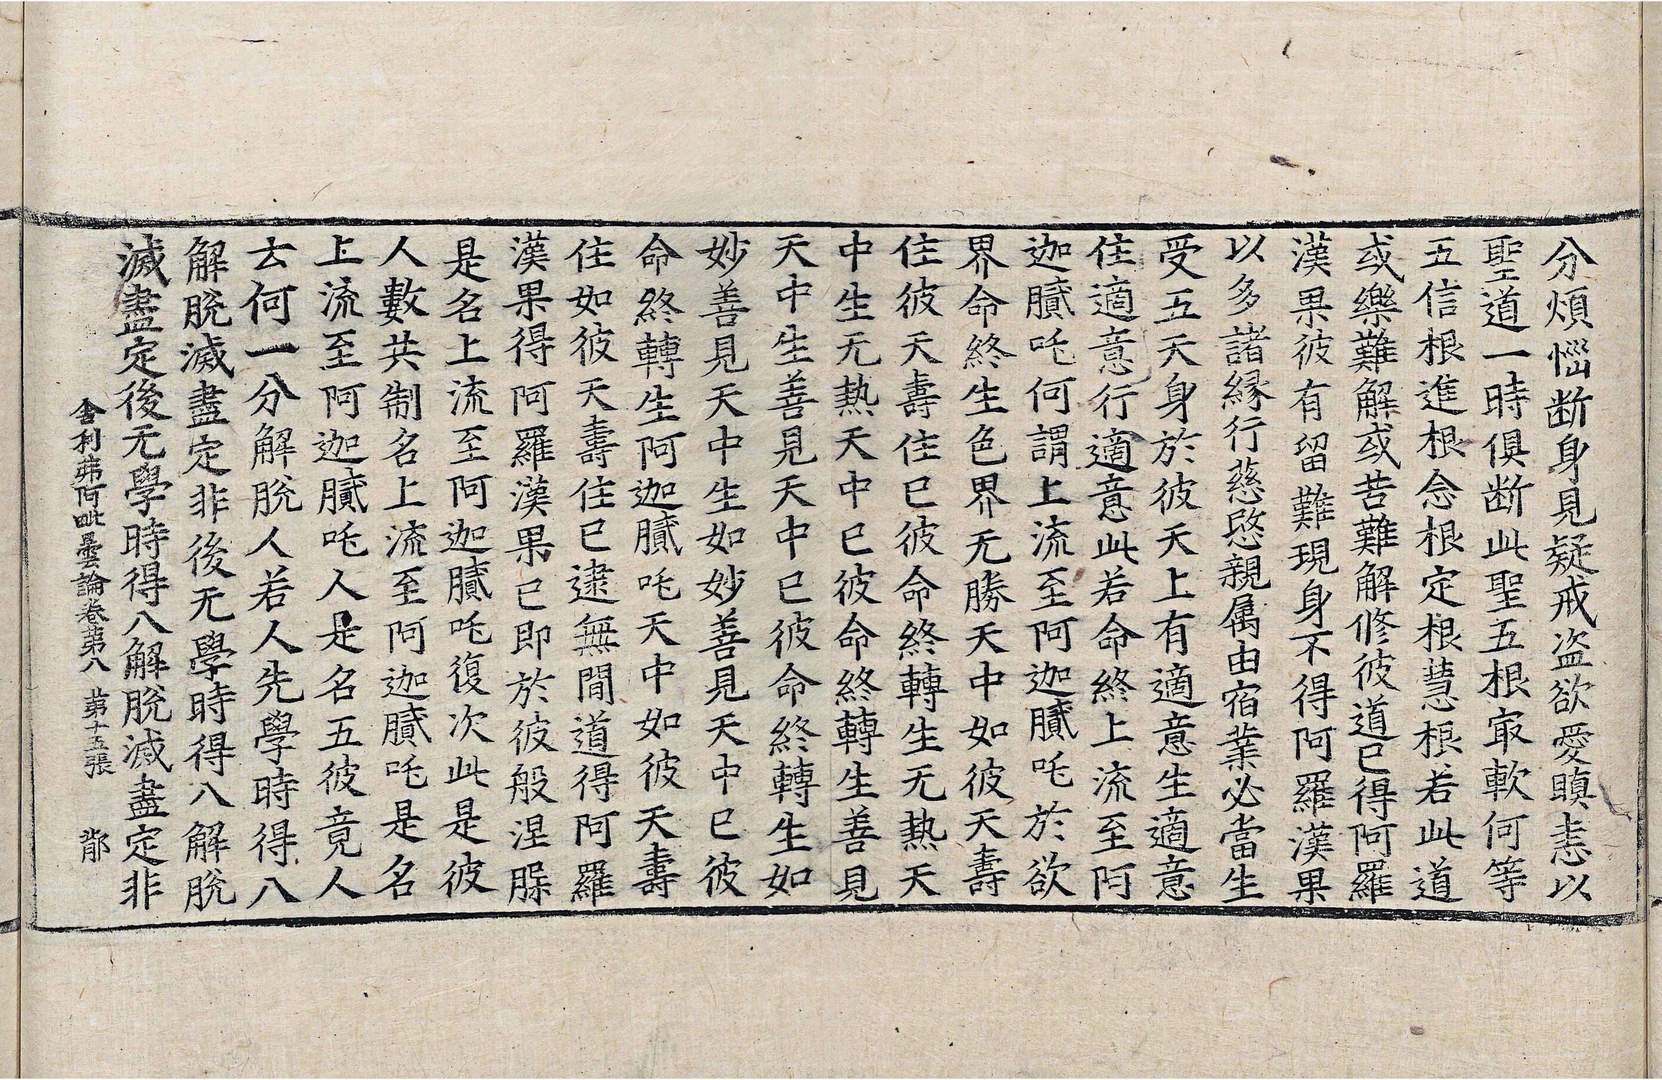 分煩惱断身見疑戒盗欲愛瞋恚以
聖道一時俱断此聖五根冣軟何等
五信根進根念根定根慧根若此道
或樂難解或苦難解修彼道已得阿羅
漢果彼有留難現身不得阿羅漢果
以多諸縁行慈愍親属由宿業必當生
受五天身於彼天上有適意生適意
住適意行適意此若命終上流至阿
迦膩吒何謂上流至阿迦膩吒於欲
界命終生色界无勝天中如彼天壽
住彼天壽住已彼命終轉生无熱天
中生无熱天中已彼命終轉生善見
天中生善見天中已彼命終轉生如
妙善見天中生如妙善見天中已彼
命終轉生阿迦膩吒天中如彼天壽
住如彼天壽住已逮無間道得阿羅
漢果得阿羅漢果已即於彼般涅𣪍
是名上流至阿迦膩吒復次此是彼
人數共制名上流至阿迦膩吒是名
上流至阿迦膩吒人是名五彼竟人
云何一分解脫人若人先學時得八
解脫滅盡定非後无學時得八解脫
滅盡定後无學時得八解脫滅盡定非
舍利弗阿毗曇論卷第八 第十五張